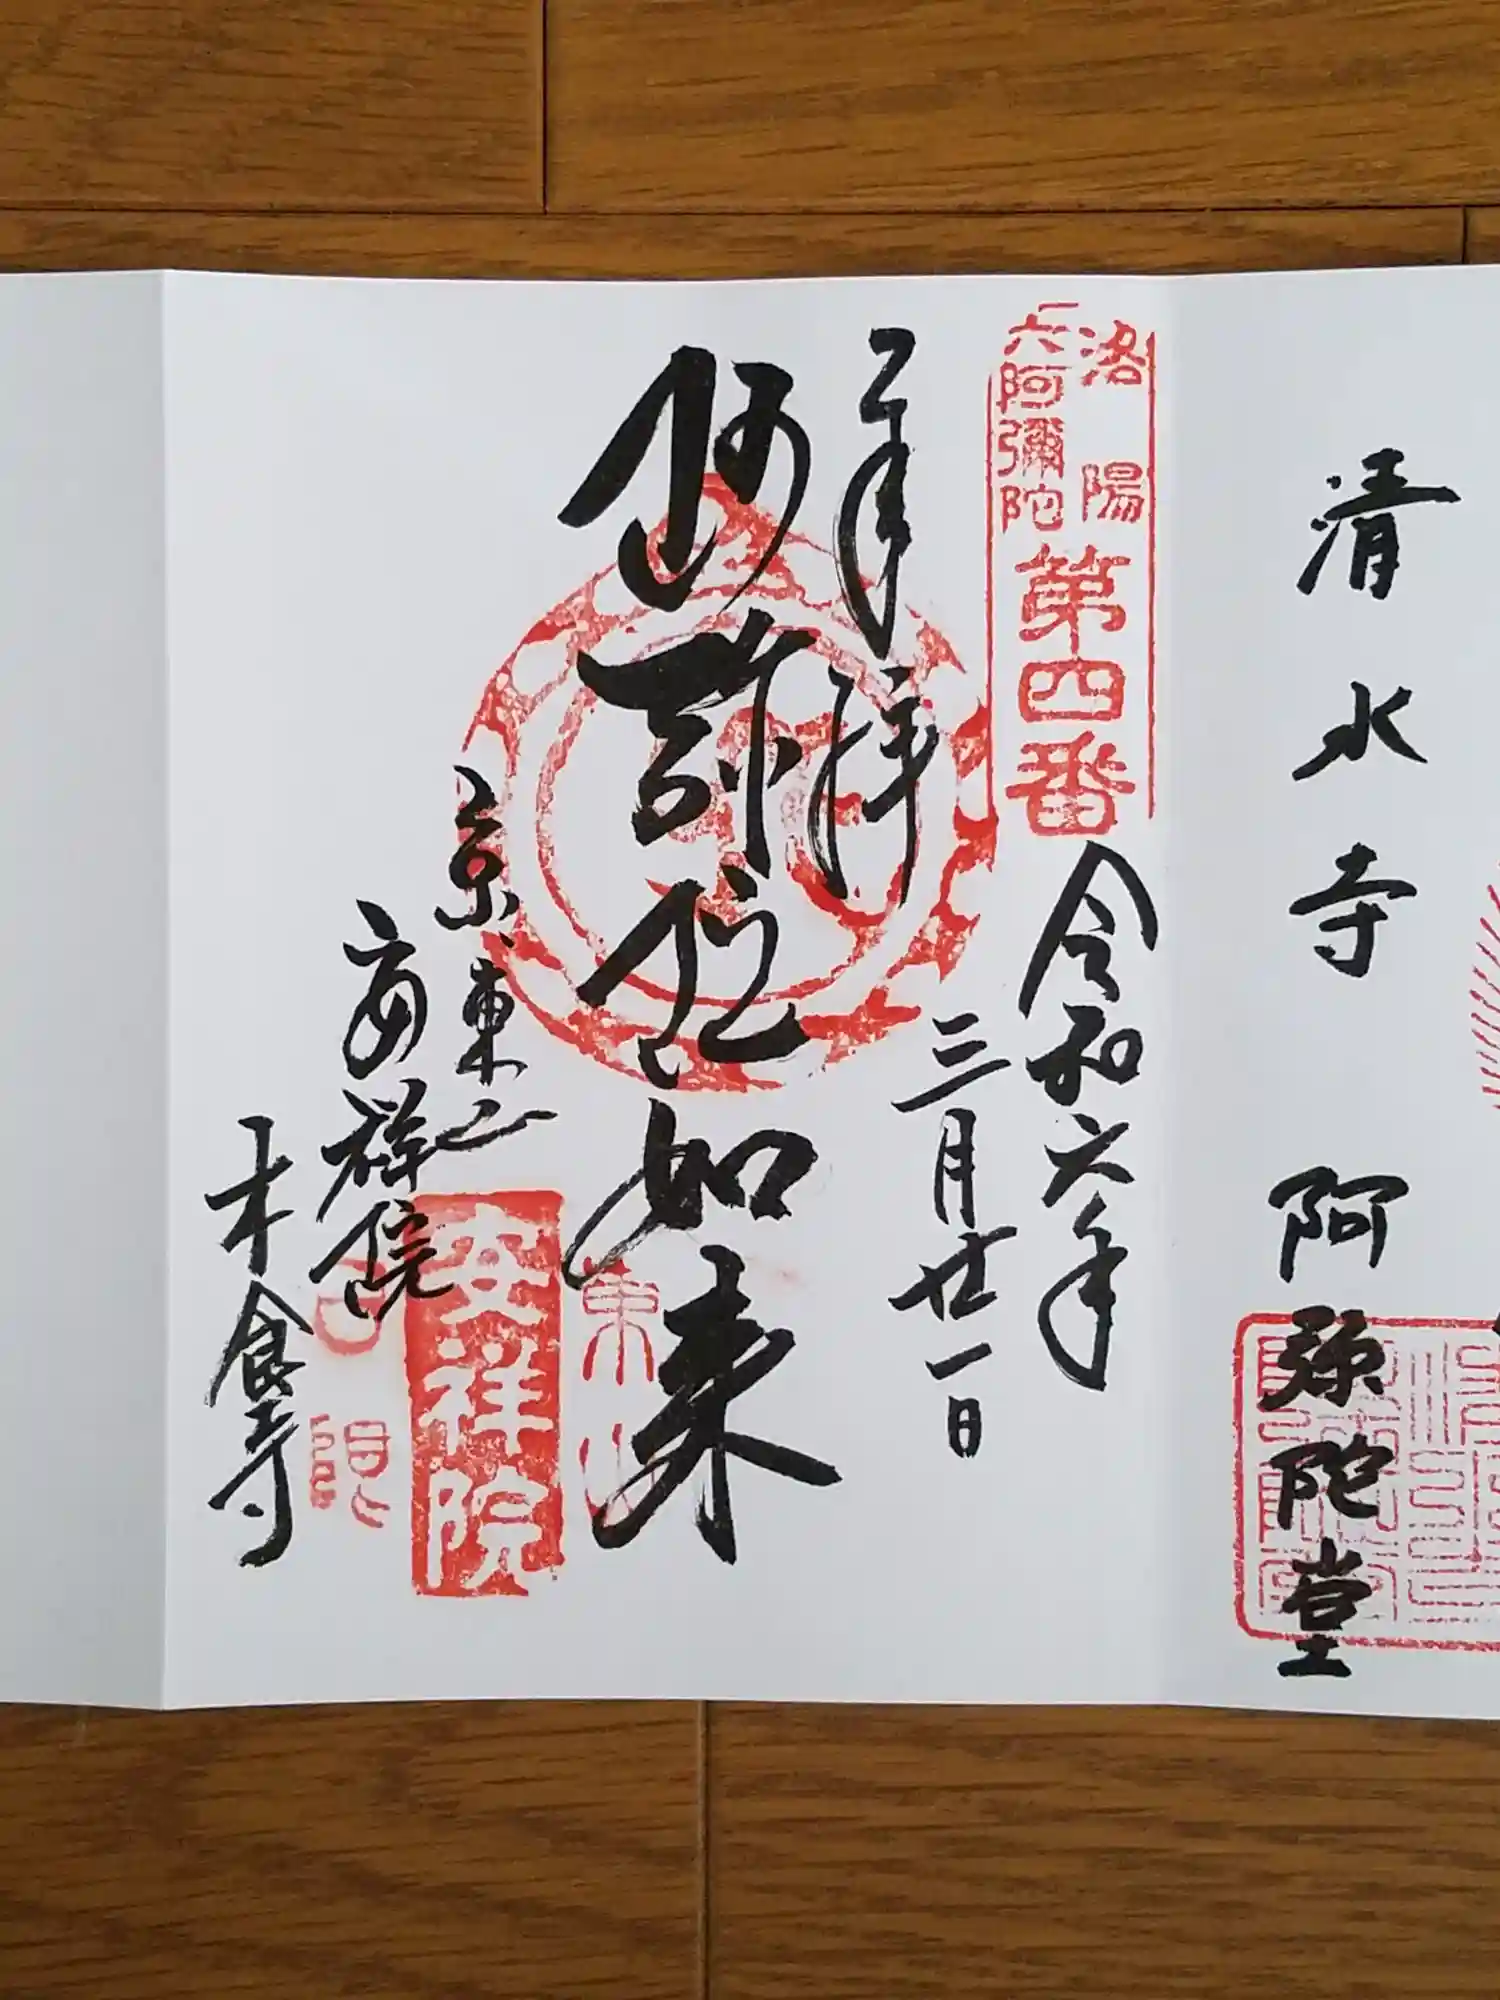 清水寺 阿弥陀堂
洛陽
六阿彌陀
第四番
令和六年
三月廿一日
奉拝
阿弥陀如来
京東山
安祥院
木食寺
安祥院
東山